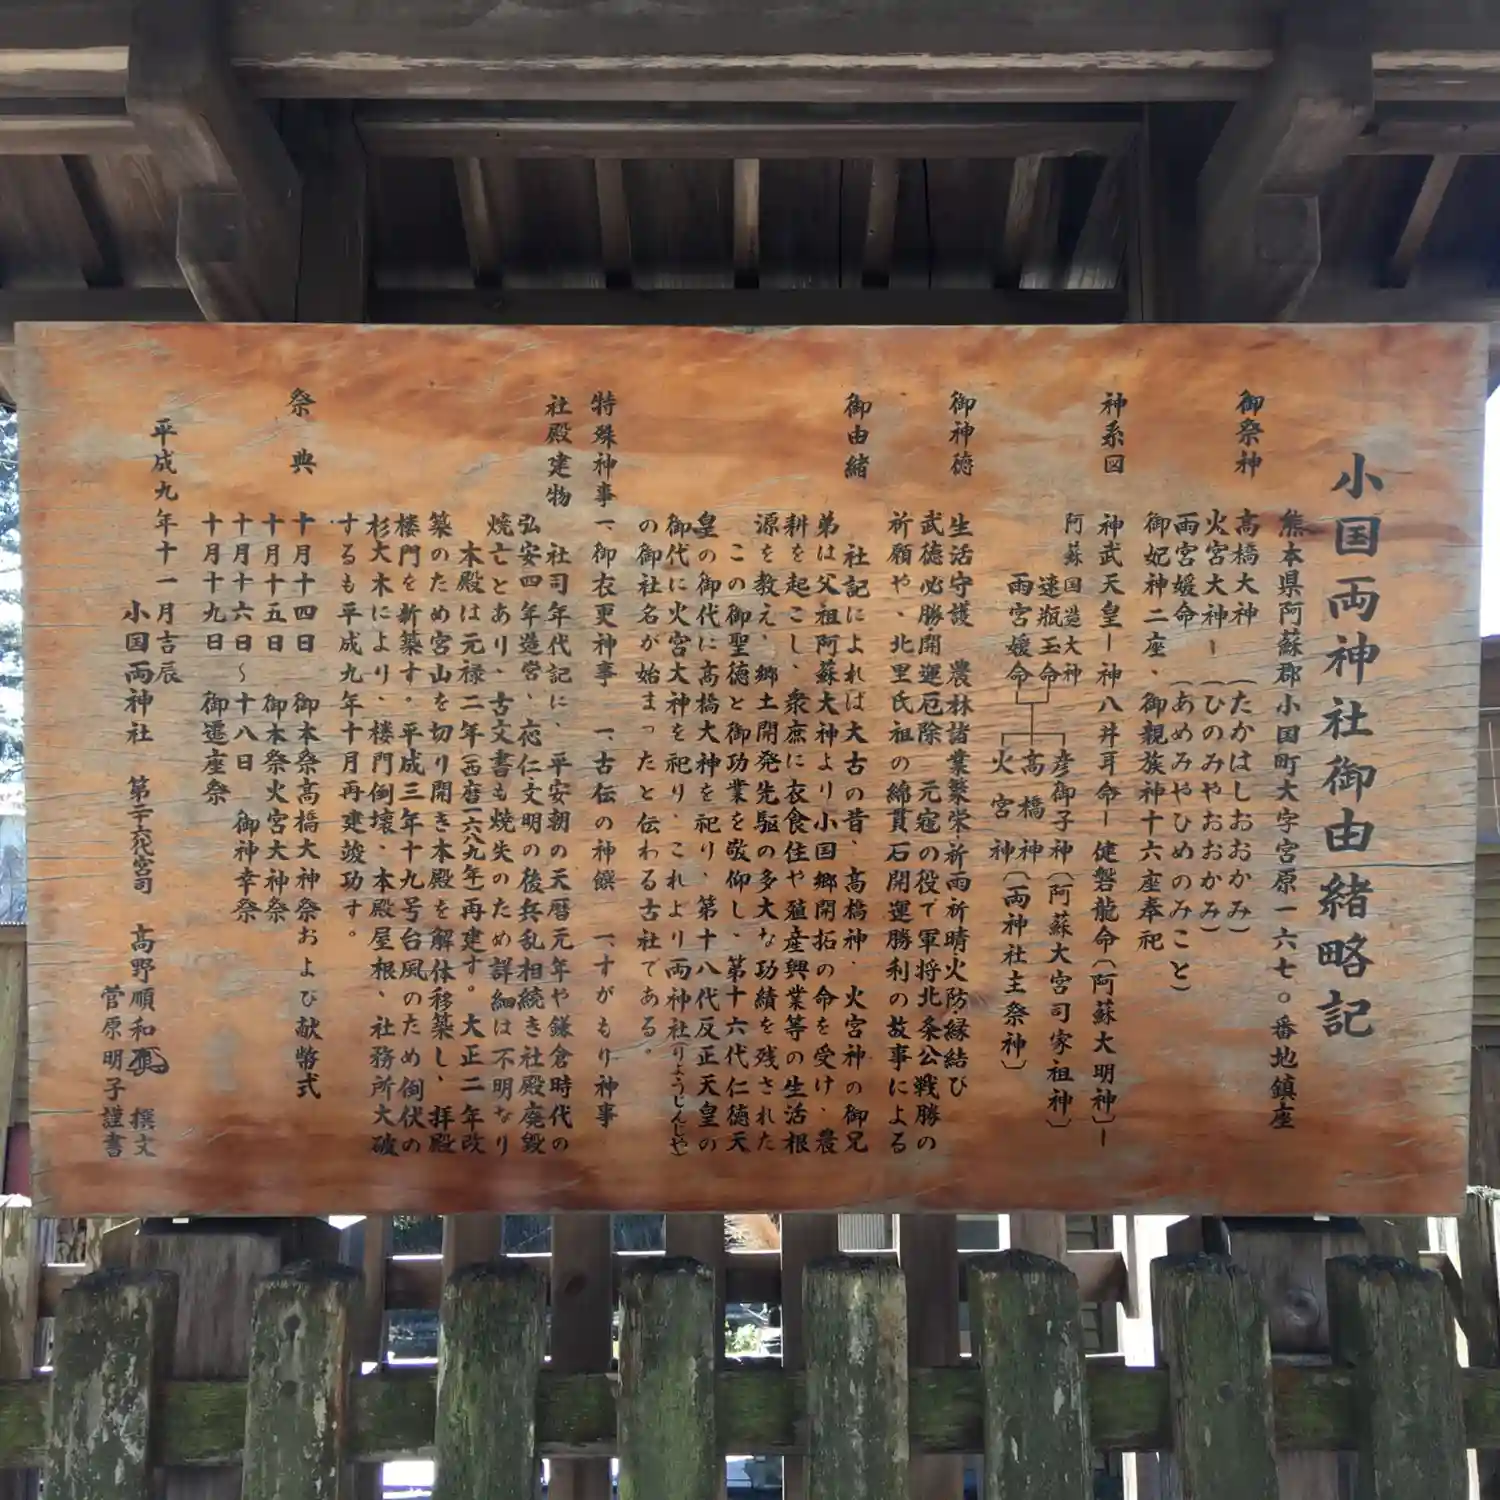 小国両神社御由緒略記
熊本県阿蘇郡小国町大字宮原一六七〇番地鎮座
御祭神
高橋大神 (たかはしおおかみ)
火宮大神ー(ひのみやおおかみ)
雨宮媛命 (あめみやひめのみこと)
御妃神二座、御親族神十六座奉祀
神系図
神武天皇ー神八井耳命ー健磐龍命〔阿蘇大明神〕ー
阿蘇国造大神
速瓶玉命
雨宮媛命
彦御子神〔阿蘇大宮司家祖神〕
高橋神
火宮神〔両神社主祭神〕
御神徳
生活守護 農林諸業繁栄・祈雨祈晴火防・縁結び
武徳必勝開運厄除 元寇の役で軍将北条公戦勝の
祈願や、北里氏祖の綿貫石開運勝利の故事による
御由緒
社記によれば大古の昔、高橋神、火宮神の御兄
弟は父祖阿蘇大神より小国郷開拓の命を受け、農
耕を起こし、衆庶に衣食住や殖産興業等の生活根
源を教え、郷土開発先駆の多大な功績を残された
この御聖徳と御功業を敬仰し、第十六代仁徳天
皇の御代に高橋大神を祀り、第十八代反正天皇の
御代に火宮大神を祀り、これより両神社(りょうじんじや)
の御社名が始まったと伝わる古社である。
特殊神事
一、御衣更神事 一、古伝の神饌 一、すがもり神事
社殿建物
社司年代記に、平安朝の天暦元年や鎌倉時代の
弘安四年造営、応仁文明の後兵乱相続き社殿廃毀
焼亡とあり、古文書も焼失のため詳細は不明なり
本殿は元禄二年(西暦一六八九年)再建す。大正二年改
築のため宮山を切り開き本殿を解体移築し、拝殿
楼門を新築す。平成三年十九号台風のため倒伏の
杉大木により、楼門倒壊、本殿屋根、社務所大破
するも平成九年十月再建竣功す。
祭典
十月十四日 御本祭高橋大神祭および献幣式
十月十五日 御本祭火宮大神祭
十月十六日~十八日 御神幸祭
十月十九日 御遷座祭
平成九年十一月吉辰
小国両神社 第二十六代宮司 高野順和 撰文
菅原明子謹書